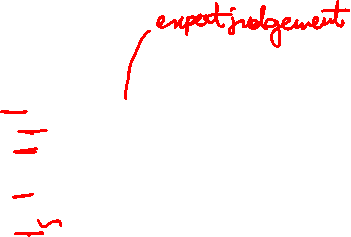 expert judgement